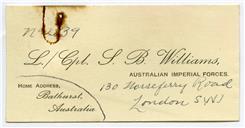 L/Cpl. S. B. Williams,
AUSTRALIAN IMPERIAL FORCES.
HOME ADDRESS,
Bathurst,
Australia.
130 Horseferry Road
London SW1